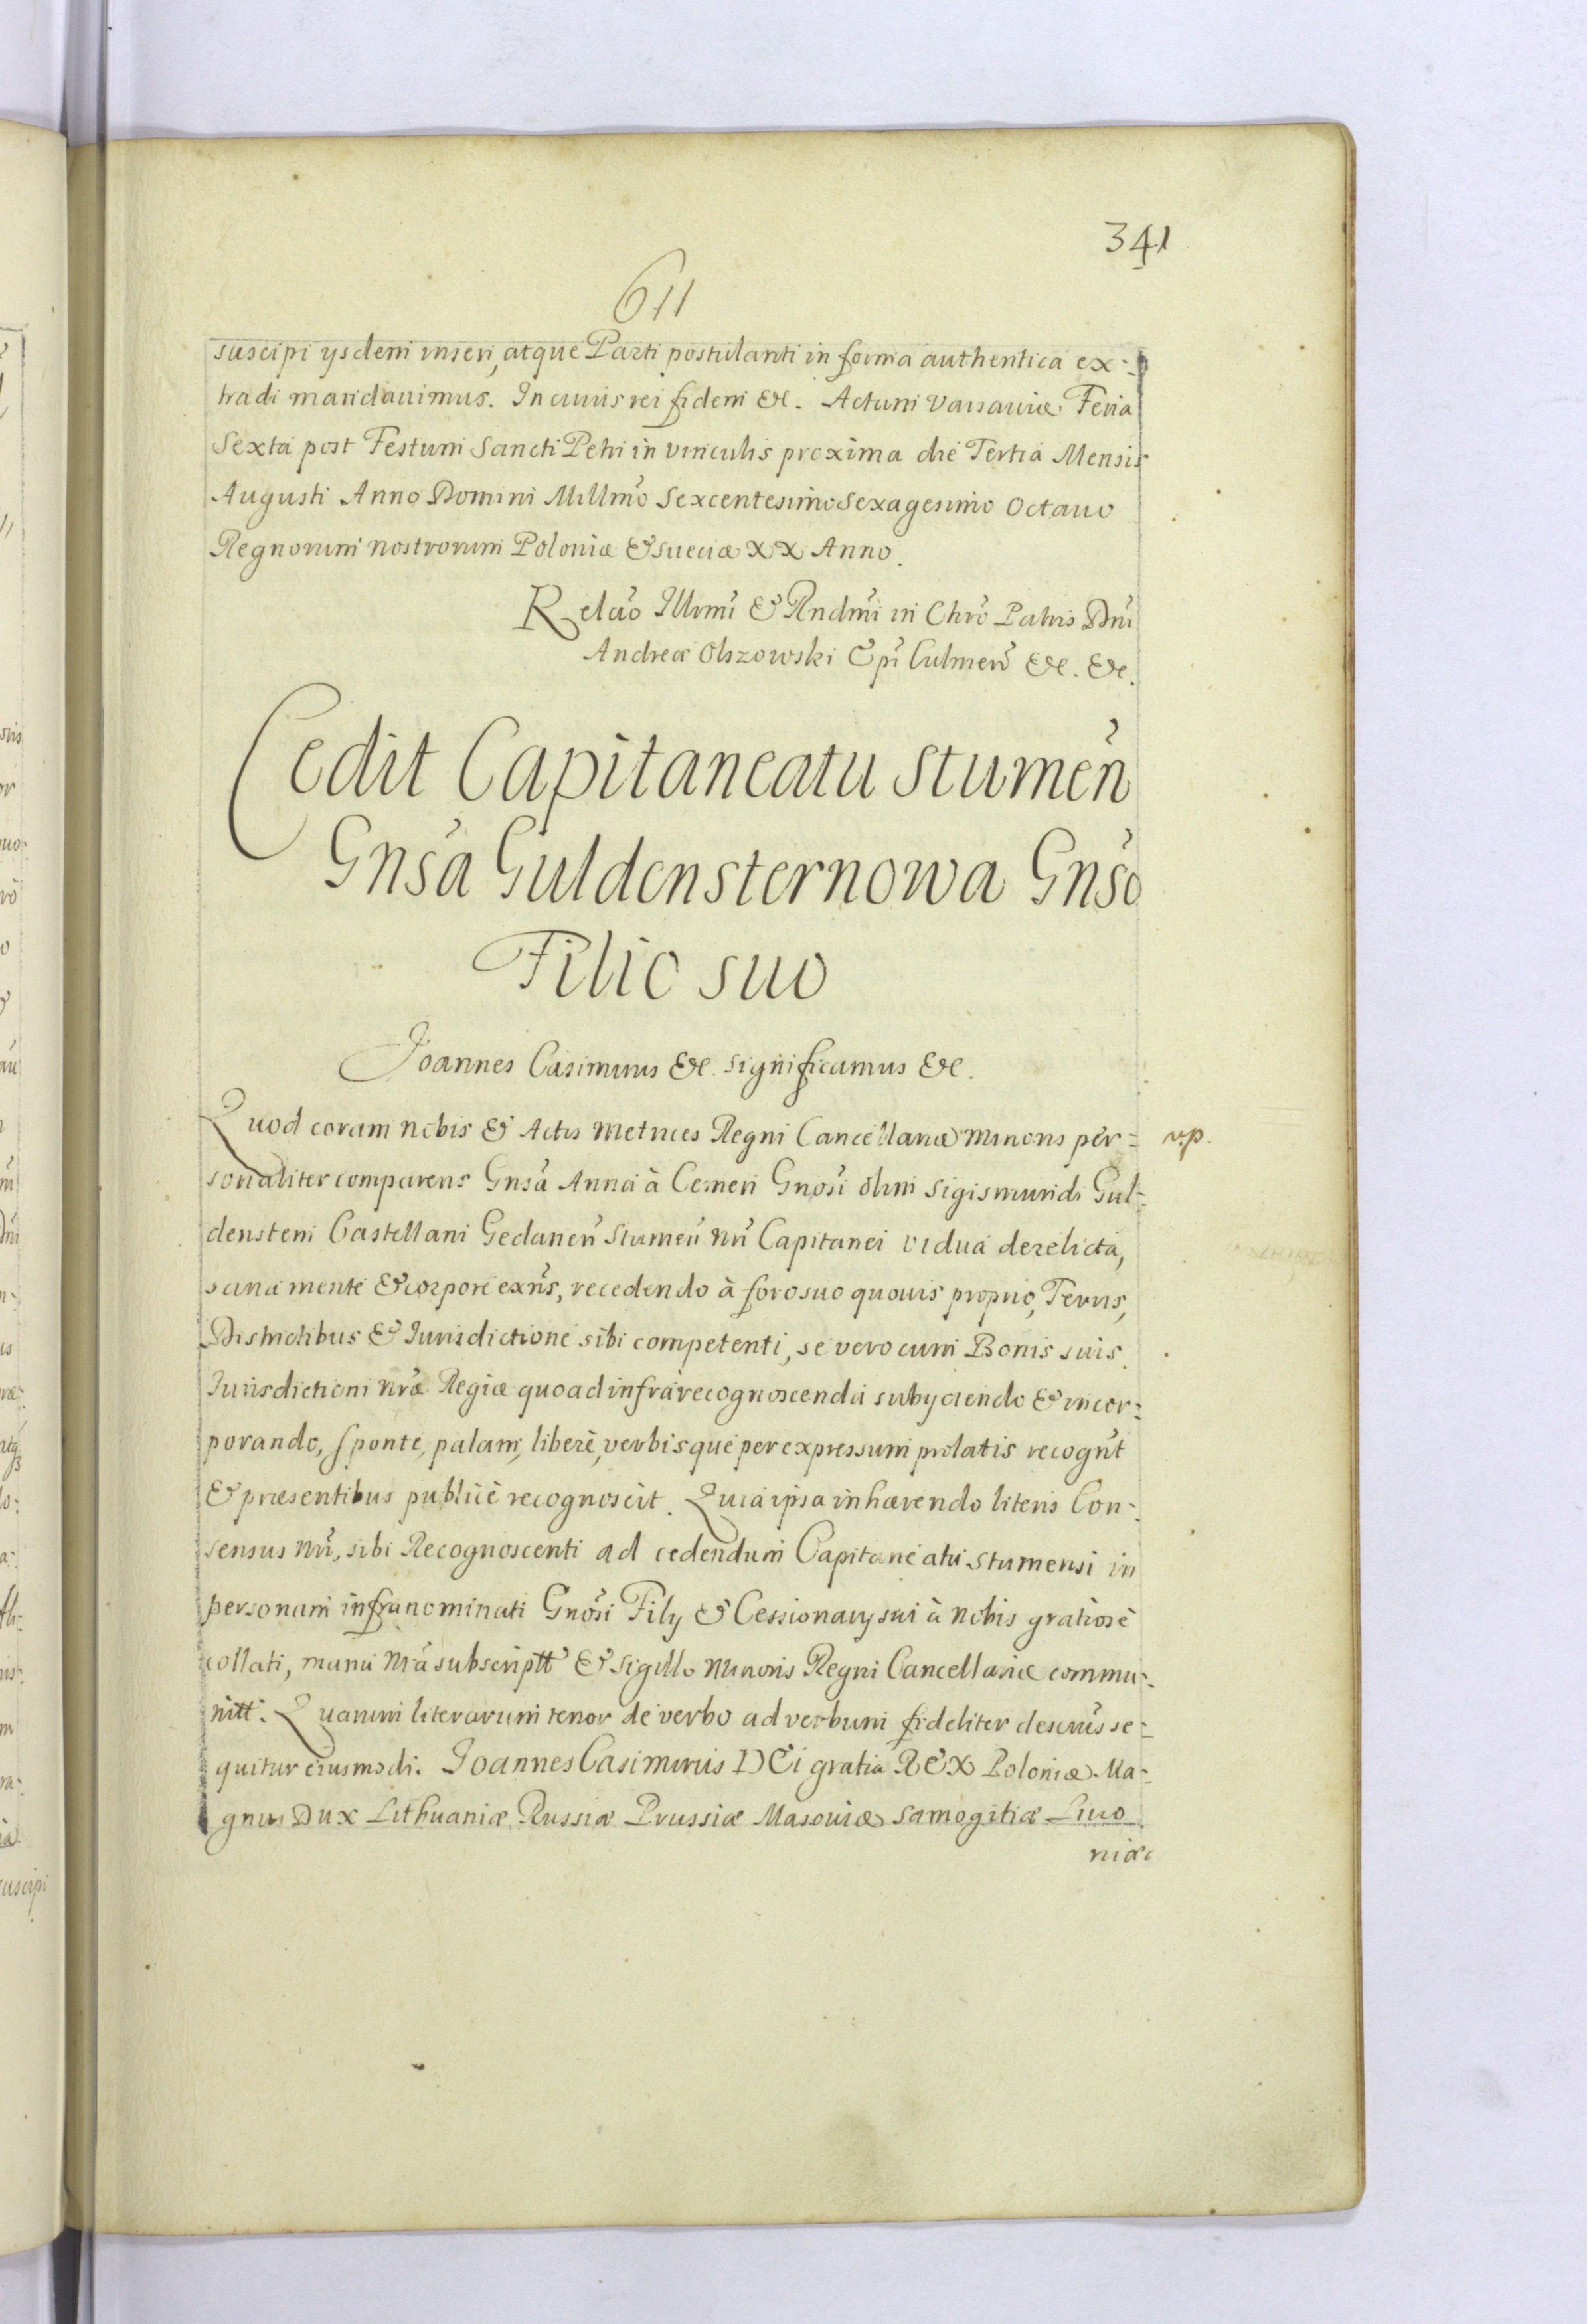 341
611
suscipi ysdem inseri, atque Parti postulanti in forma authentica ex-
tradi mandauimus. In cuius rei fidem &c. Actum Varsauiæ Feria
Sexta post Festum Sancti Petri in vinculis proxima die Tertia Mensis
Augusti Anno Domini Millm̃o Sexcentesimo Sexagesimo Octauo
Regnorum nostrorum Poloniæ & Sueciæ XX Anno.
Relãо Illrmĩ & Rndmĩ in Chrõ Patris Dnĩ
Andreæ Olszowski Epĩ Culmeñ &c. &c.
Cedit Capitaneatu Stumeñ
Gnsã Guldensternowa Gnsõ
Filio suo
Joannes Casimirus &c. significamus &c.
Quod coram nobis & Actis Metrices Regni Cancellariæ Minoris per-
v.p.
sonaliter comparens Gnsã Anna à Cemen Gnosĩ olim Sigismundi Gul-
denstern Castellani Gedaneñ Stumeñ nrĩ Capitanei vidua derelicta,
sana mente & corpore exñs, recedendo à foro suo quouis proprio, Terris,
Districtibus & Iurisdictione sibi competenti, se vero cum Bonis suis
Iurisdictioni nrã Regiæ quoad infra recognoscenda subyciendo & incor-
porando, sponte, palam, liberè, verbisque per expressum prolatis recogñt
& præsentibus publicè recognoscit. Quia ipsa inhærendo literis Con-
sensus nrĩ, sibi Recognoscenti ad cedendum Capitaneatu Stumensi in
personam infranominati Gnosĩ Fily & Cessionary sui à nobis gratiosè
collati, manu nrã subscriptt & Sigillo Minoris Regni Cancellariæ commu-
nitt. Quarum literarum tenor de verbo ad verbum fideliter descrius se-
quitur eiusmodi. Joannes Casimirus DEi gratia REX Poloniæ Ma-
gnus Dux Lithuaniæ Russiæ Prussiæ Masouiæ Samogitiæ Liuo
niæ